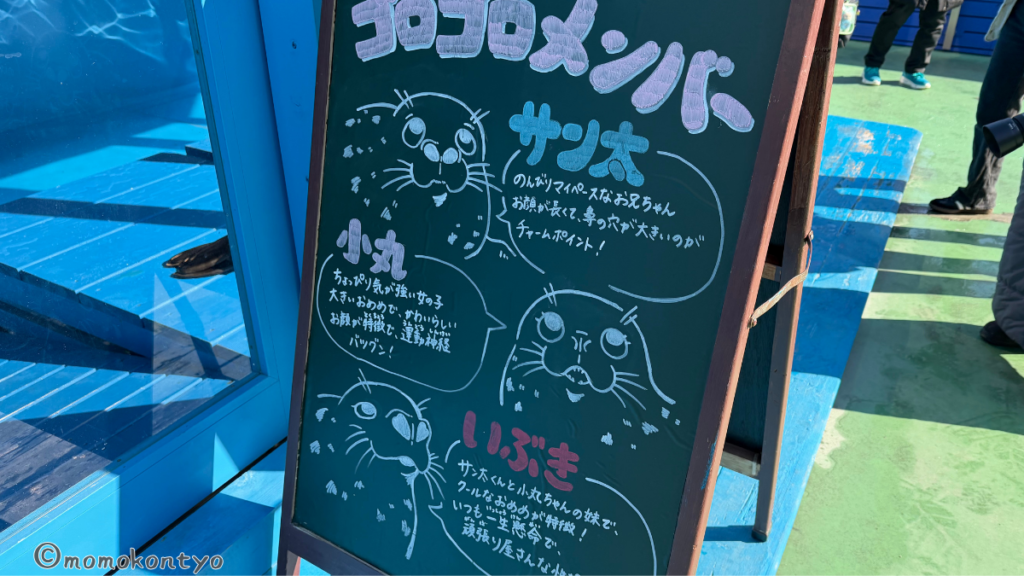 ゴロゴロメンバー
サン太
のんびりマイペースなお兄ちゃん
お顔が長くて、鼻の穴が大きいのが
チャームポイント!
小丸
ちょっぴり気が強い女の子
大きいおめめで、かわいらしい
お顔が特徴で、運動神経
バツグン!
いぶき
サン太くんと小丸ちゃんの妹で、
クールなおめめが特徴!
いつも一生懸命で、
頑張り屋さんな
©momokontyo